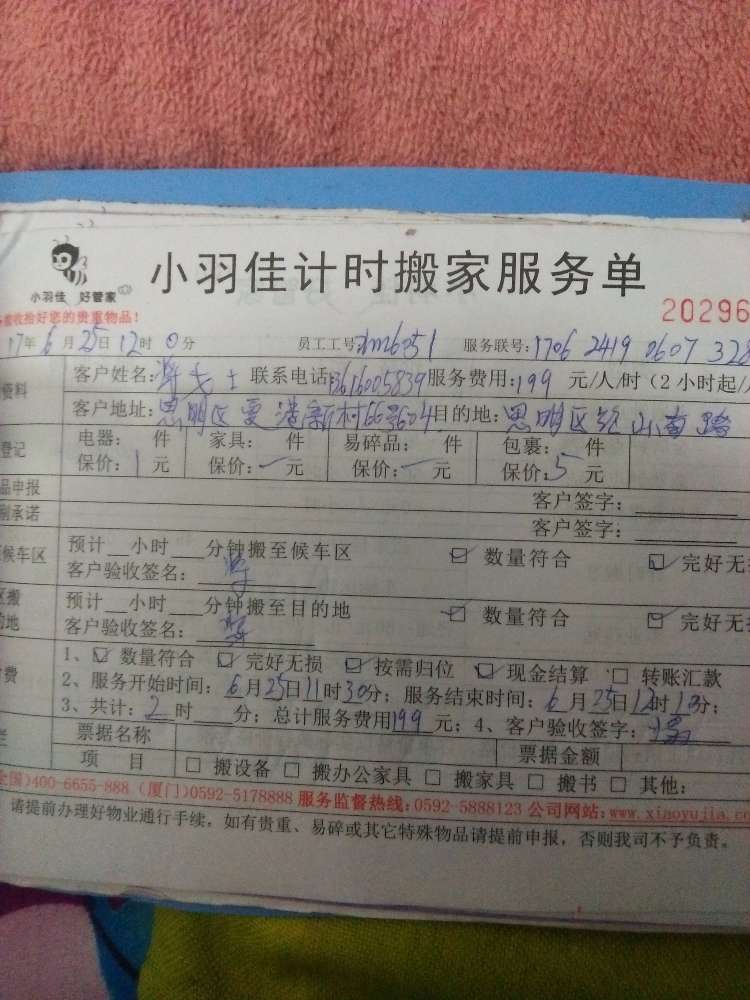 小羽佳计时搬家服务单
小羽佳 好管家
收拾好您的贵重物品！
20296
17年6月25日12时0分 员工工号 服务联号：1706 2419 0607 328
资料 客户姓名： 女士 联系电话 13616005839 服务费用：199 元/人/时（2小时起/
客户地址：思明区 新村66号604 目的地：思明区 南路
登记 电器： 件 家具： 件 易碎品： 件 包裹： 件
保价：1元 保价：一元 保价：一元 保价：5元
品申报 客户签字：
别承诺 客户签字：
候车区 预计__小时___分钟搬至候车区 ☑ 数量符合 ☑ 完好无
客户验收签名：
预计__小时___分钟搬至目的地 ☑ 数量符合 ☑ 完好无
的地 客户验收签名：
费 1、☑ 数量符合 ☑ 完好无损 ☑ 按需归位 ☑ 现金结算 □ 转账汇款
2、服务开始时间：6月25日11时30分；服务结束时间：6月25日12时10分；
3、共计：2时___分；总计服务费用199元；4、客户验收签字：
票据名称 票据金额
项 目 □ 搬设备 □ 搬办公家具 □ 搬家具 □ 搬书 □ 其他：
全国)400-6655-888（厦门)0592-5178888 服务监督热线：0592-5888123 公司网站：www.xiaoyujia.co
请提前办理好物业通行手续，如有贵重、易碎或其它特殊物品请提前申报，否则我司不予负责。